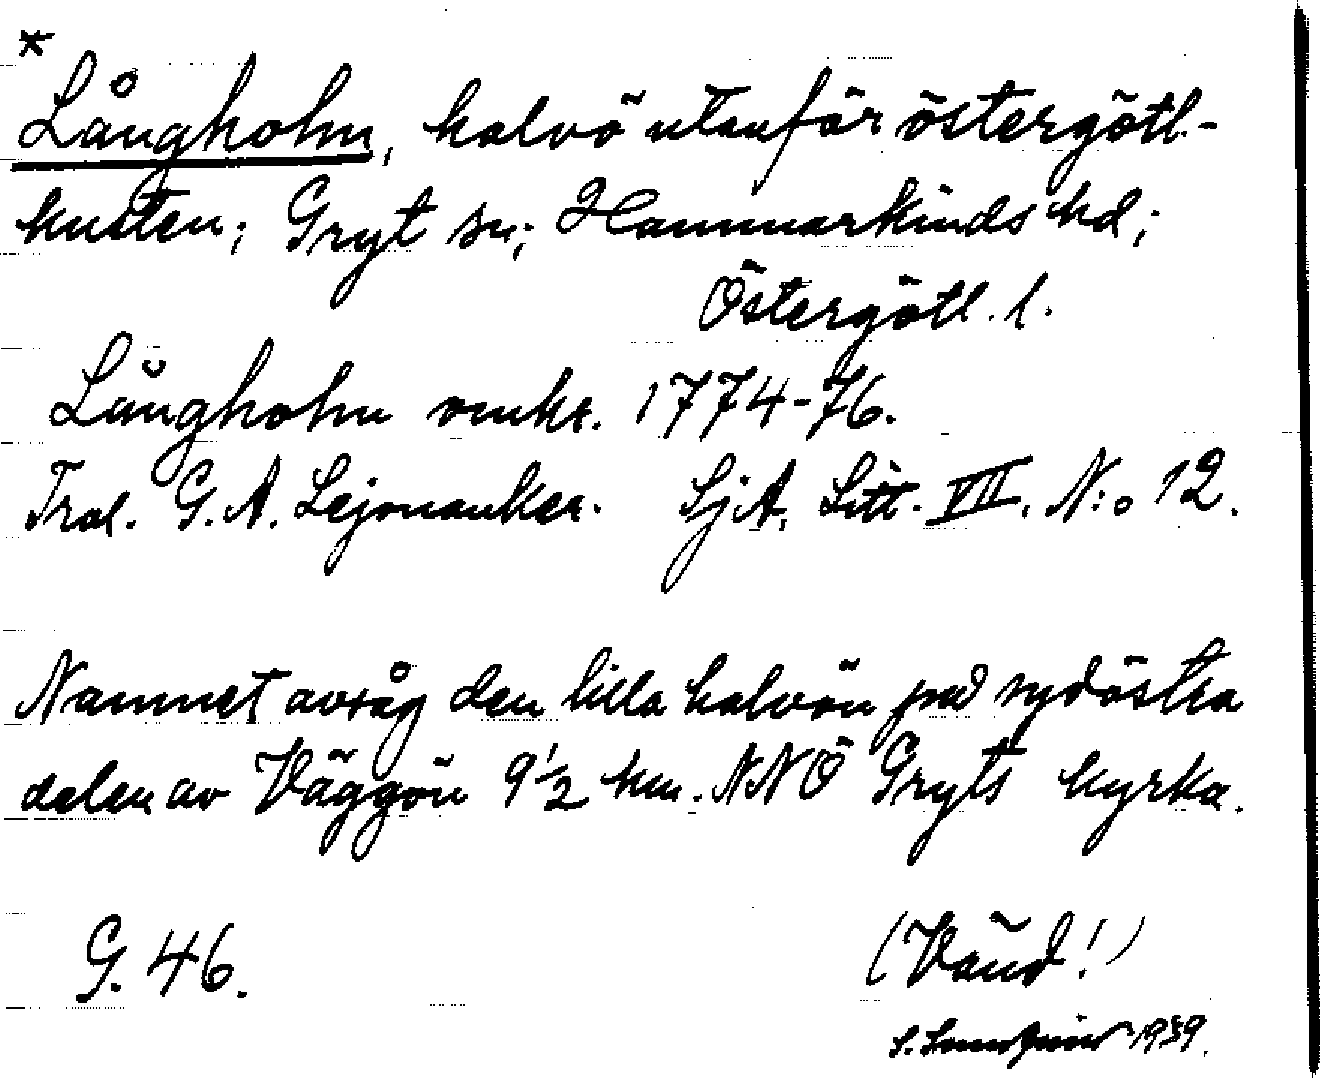 *
Långholm, halvö utanför östergötl-
kusten; Gryt sn; Hammarkinds hd;
Östergötl. l.
Långholm omkr. 1774-76.
Trol. G. A. Lejonanker. SjA, Litt. VII. N:o 12.
Namnet avsåg den lilla halvön på sydöstra
delen av Väggön 9 1/2 km. NNÖ Gryts kyrka.
G. 46.
(Vänd!)
S. 1939.